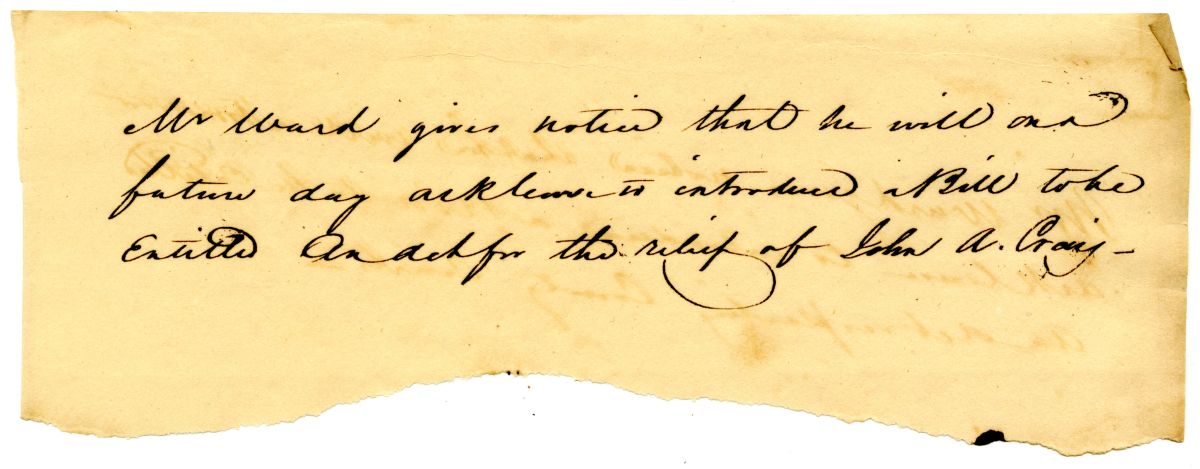 Mr Ward gives notice that he will on a
future day ask leave to introduce a Bill to be
Entitled An act for the relief of John A. Craig –